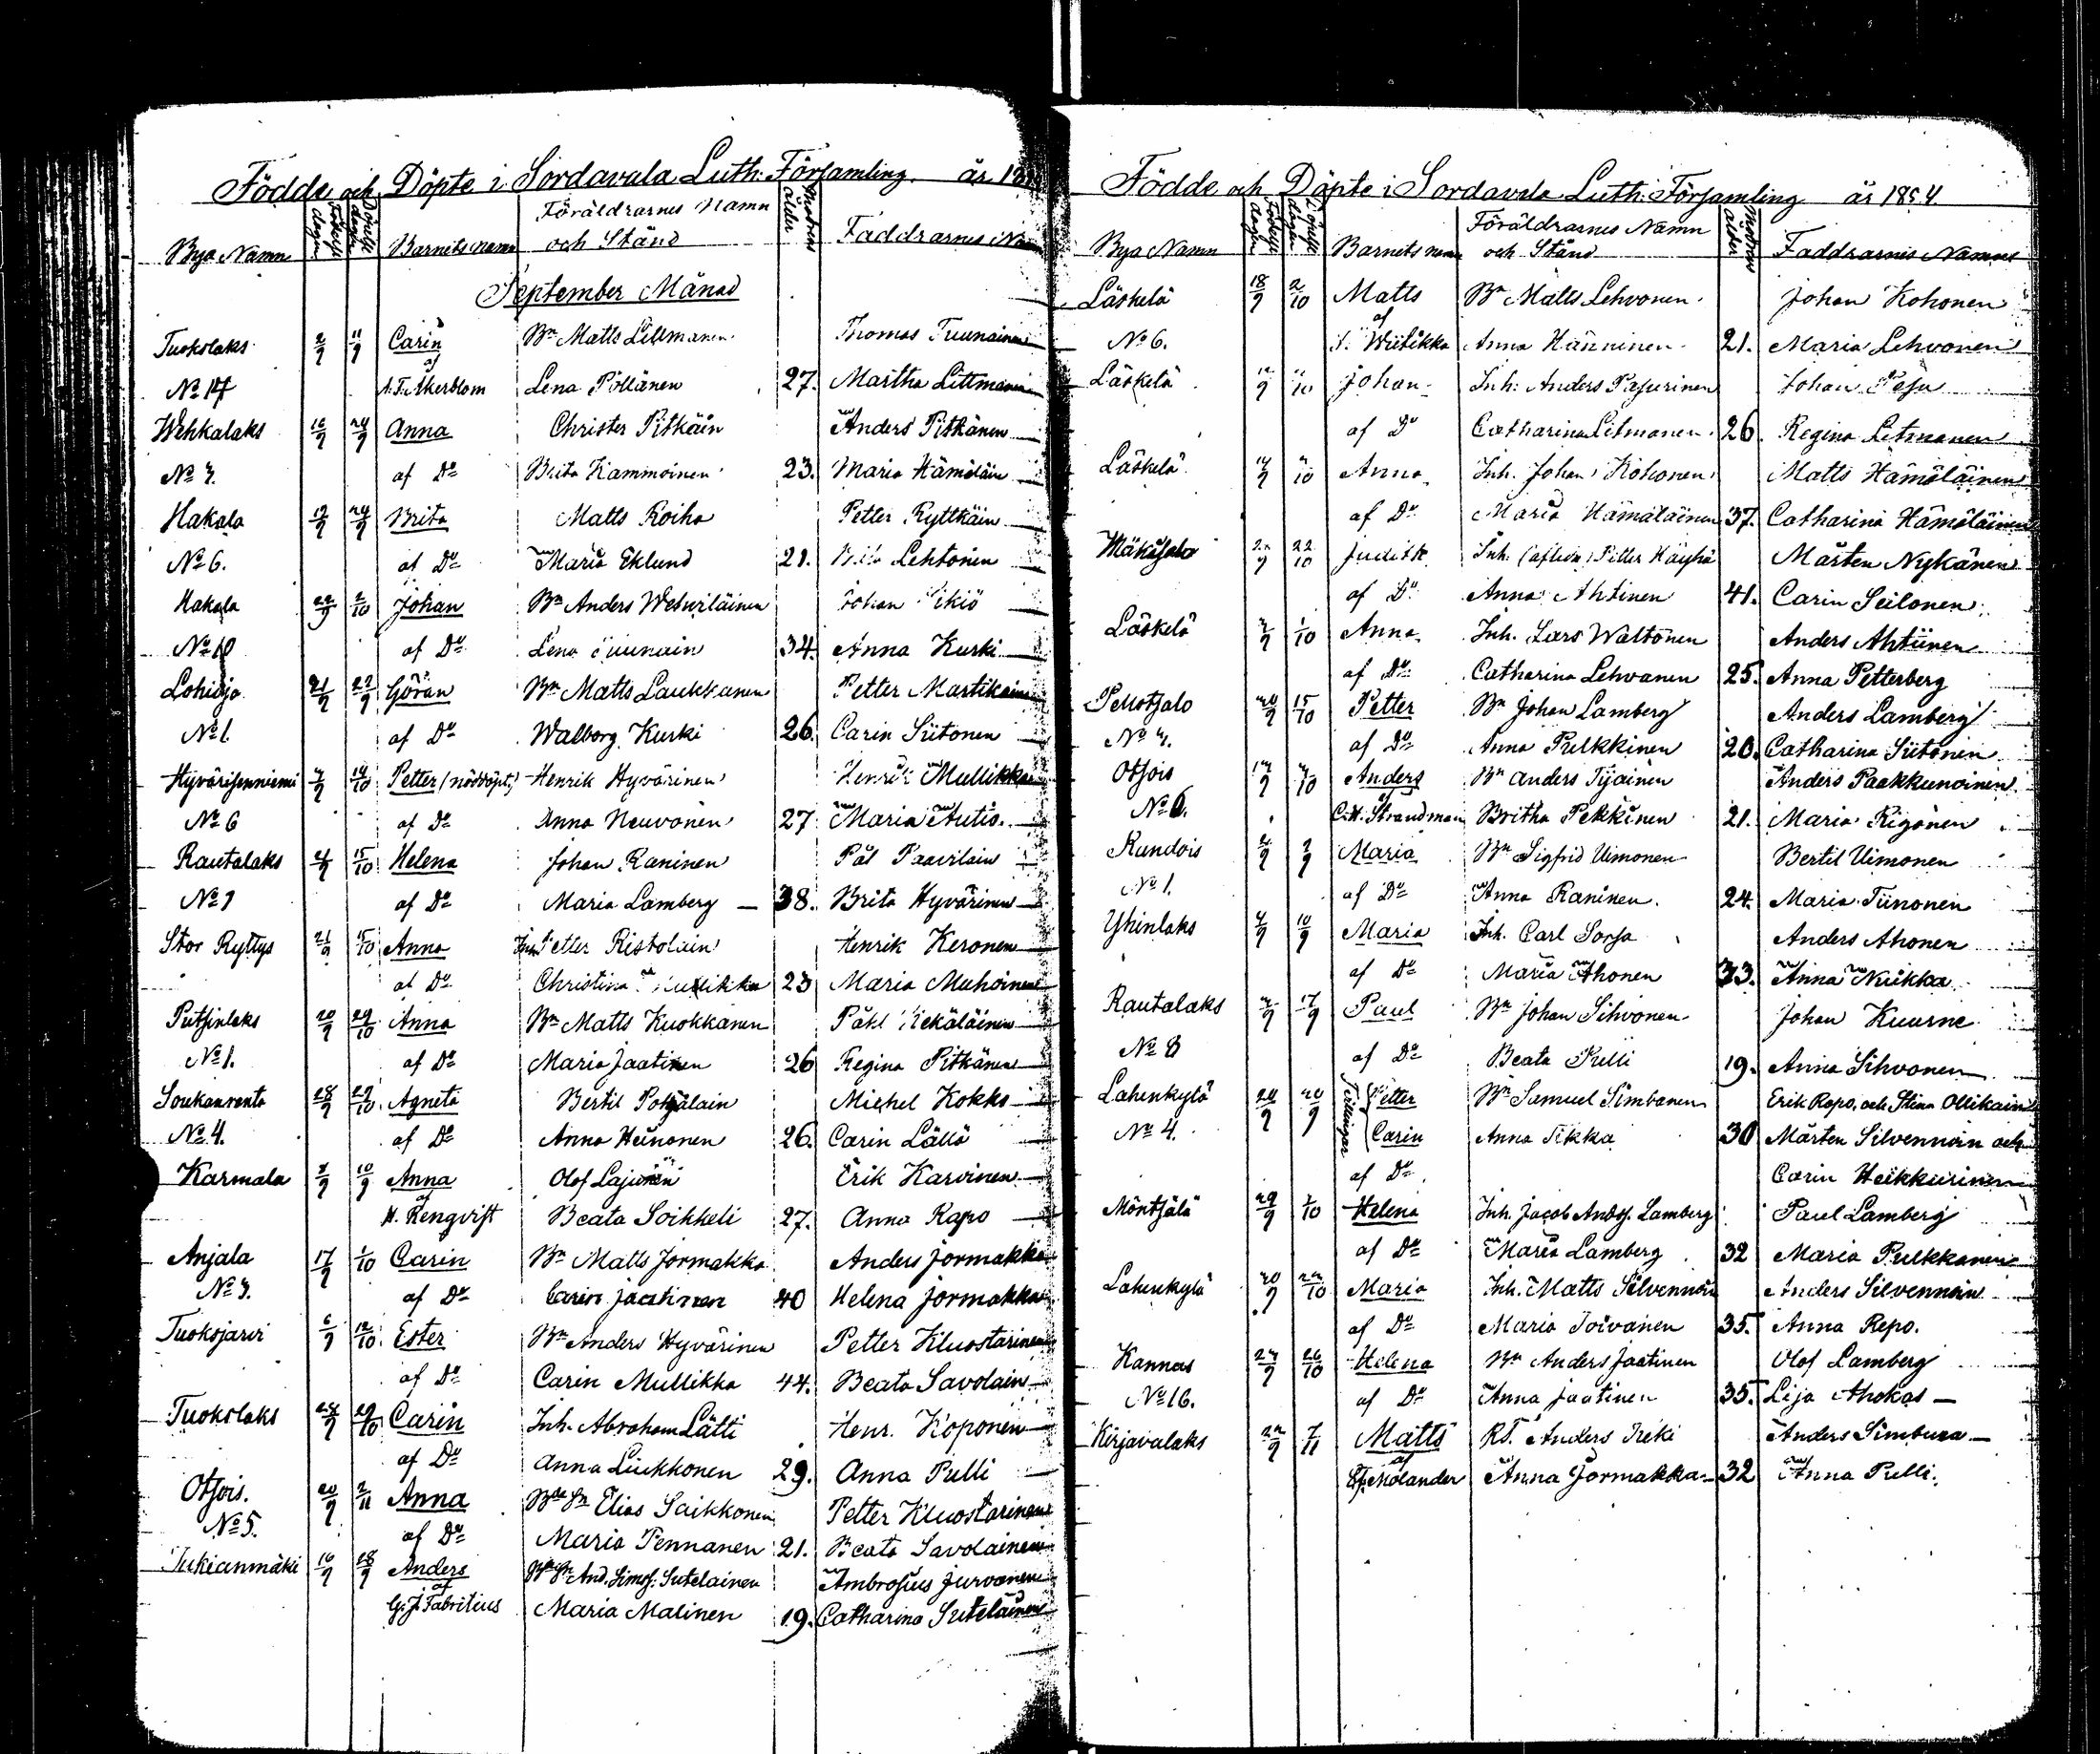 Födde och Döpte i Sordavala Luth. Församling år 18
Bya Namn Födelse dagen Döpelse dagen Barnets namn Föräldrarnes Namn och Stånd Modrens ålder Faddrarnes
September Månad
Tuokslaks 2/9 11/9 Carin Bn Matts Littmanen Thomas Tuunainen
No 17 af A. F. Akerblom Lena Pöllänen 27. Martha Littmanen
Wehkalaks 16/9 24/9 Anna Christer Pitkäin Anders Pitkänen
No 7. af Do Brita Kammoinen 23. Maria Hämäläin
Hakala 19/9 24/9 Brita Matts Roiha Petter Ryttkäin
No 6. af Do Maria Eklund 21. Lehtonen
Hakala 22/9 2/10 Johan Bn Anders Weturläinen Johan
No 10 af Do Lena 34. Anna Kurki
Lohioja 21/9 27/9 Göran Bn Matts Laukkanen Petter Martikain
No 1. af Do Walborg Kurki 26. Carin Siitonen
Hyvärisenniemi 14/10 Petter (nöddöpt.) Henrik Hyvärinen Henrik Mullikka
No 6 af Do Anna Neuvonen 27 Maria Autio.
Rautalaks 15/10 Helena Johan Raninen Pål Paavilain
No 7 af Do Maria Lamberg 38. Brita Hyvärinen
Stor Ryttys 21/9 15/10 Anna Inh. Petter Ristolain Henrik Keronen
af Do Christina Mullikka 23 Maria Muhoinen
Putsinlaks 20/9 29/10 Anna Bn Matts Kuokkanen Påhl Kekäläinen
No 1. af Do Maria Jaatinen 26 Regina Pitkänen
Soukanranta 28/9 29/10 Agneta Bertil Pohjalain Michel Kokko
No 4. af Do Anna Heinonen 26. Carin Lättö
Karmala 10/9 Anna Olof Lajunen Erik Karvinen
af H. Rengvist Beata Soikkeli 27. Anna Rapo
Anjala 17/9 1/10 Carin Bn Matts Jormakka Anders Jormakka
No 3. af Do Carin Jaatinen 40 Helena Jormakka
Tuoksjarvi 6/9 12/10 Ester Bn Anders Hyvärinen Petter Kluostarinen
af Do Carin Mullikka 44. Beata Savolain
Tuokslaks 28/9 29/10 Carin Inh. Abraham Lätti Henr. Koponen
af Do Anna Liukkonen 29. Anna Pulli
Otsois. 20/9 2/11 Anna Bde Sn Elias Saikkonen Petter Kluostarinen
No 5. af Do Maria Pennanen 21. Beata Savolainen
Tukianmäki 16/9 18/9 Anders Bde Sn And. Simos. Sutelainen Ambrosius Jurvanen
af G. J. Fabritius Maria Malinen 19. Catharina Sutelainen
Födde och Döpte i Sordavala Luth. Församling år 1854
Bya Namn Födelse dagen Döpelse dagen Barnets namn Föräldrarnes Namn och Stånd Modrens ålder Faddrarnes Namn
Läskelä 18/9 2/10 Matts Bn Matts Lehvonen Johan Kohonen
No 6. af Wiitikka Anna Hänninen 21. Maria Lehvonen
Läskelä Johan Inh. Anders Pasurinen Johan
af Do Catharina Litmanen 26. Regina Litmanen
Läskelä Anna Inh. Johan Kohonen Matts Hämäläinen
af Do Maria Hämäläinen 37. Catharina Hämäläinen
Mäkisalo 22/10 Judith Inh. (afliden) Petter Häyhä Mårten Nykänen
af Do Anna Ahtinen 41. Carin Seilonen
Läskelä 1/10 Anna Inh. Lars Waltonen Anders Ahtiinen
af Do Catharina Lehvanen 25. Anna Petterberg
Pellotsalo 15/10 Petter Bn Johan Lamberg Anders Lamberg
No 4. af Do Anna Pulkkinen 20. Catharina Siitonen
Otsois Anders Bn Anders Tijainen Anders Paakkunoinen
No 6. af C. H. Strandman Britha Pekkinen 21. Maria Rigonen
Rundois Maria Bn Sigfrid Uimonen Bertil Uimonen
No 1. af Do Anna Raninen 24. Maria Tiinonen
Yhinlaks 4/9 10/9 Maria Inh. Carl Sorsa Anders Ahonen
af Do Maria Ahonen 33. Anna Nuikka
Rautalaks 17/9 Paul Bn Johan Sihvonen Johan Kuurne
No 8 af Do Beata Pulli 19. Anna Sihvonen
Lahenkylä 20/9 20/9 Tvillingar Petter Bn Samuel Simbanen Erik Ropo, och Stina Ollikain
No 4. Carin Anna Sikka 30 Mårten Silvennoin och
af Do Carin Heikkurinen
Möntsälä 29/9 1/10 Helena Inh. Jacob Ands. Lamberg Paul Lamberg
af Do Maria Lamberg 32 Maria Pulkkanen
Lahenkylä Maria Inh. Matts Silvennoin Anders Silvennoin
af Do Maria Toivanen 35. Anna Repo.
Kannas 24/9 26/10 Helena Bn Anders Jaatinen Olof Lamberg
No 16. af Do Anna Jaatinen 35. Lisa Ahokas
Kirjavalaks 22/9 7/11 Matts RS. Anders Ireki Anders Simbura
af Ef. Molander Anna Jormakka 32 Anna Pulli.